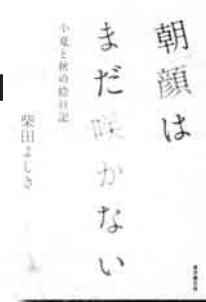 朝顔は
まだ咲かない
小夏と秋の絵日記
柴田よしき